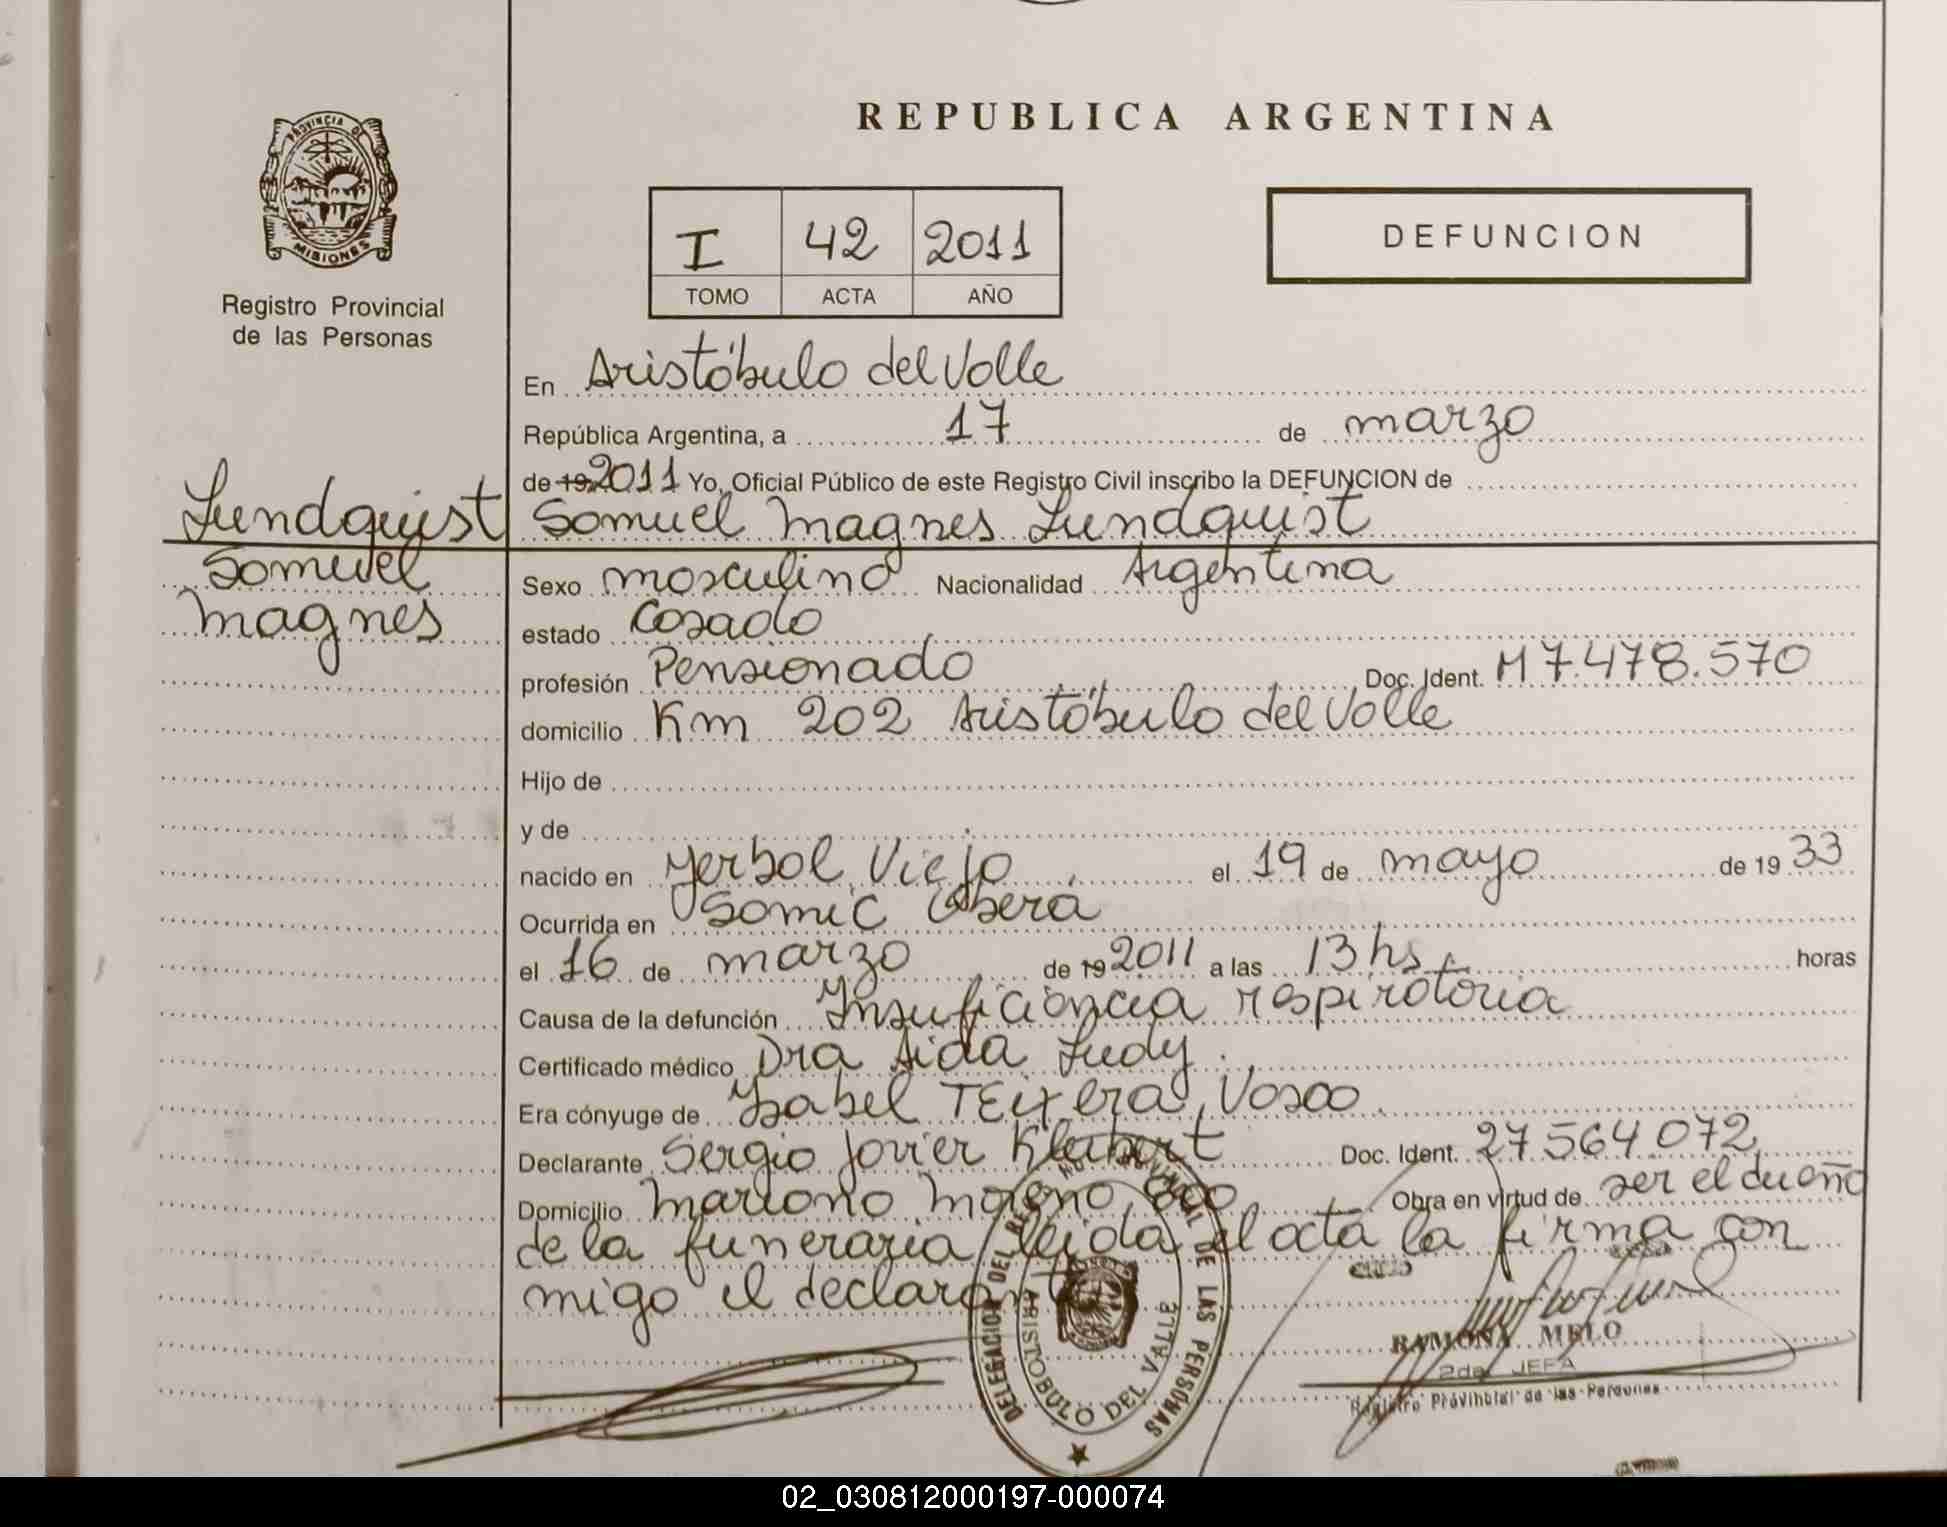 REPUBLICA ARGENTINA
PROVINCIA DE
MISIONES
Registro Provincial
de las Personas
I 42 2011
TOMO ACTA AÑO
DEFUNCION
En Aristóbulo del Valle
República Argentina, a 17 de marzo
de 19 2011 Yo, Oficial Público de este Registro Civil inscribo la DEFUNCION de
Lundquist Samuel Magnes Lundquist
Samuel
Magnes
Sexo masculino Nacionalidad Argentina
estado Casado
profesión Pensionado Doc. Ident. M 7.478.570
domicilio Km 202 Aristóbulo del Valle
Hijo de
y de
nacido en Yerbal Viejo el 19 de mayo de 19 33
Ocurrida en Samic Oberá
el 16 de marzo de 19 2011 a las 13 hs horas
Causa de la defunción Insuficiencia respiratoria
Certificado médico Dra Aida Ludy
Era cónyuge de Ysabel Teixera Vasco
Declarante Sergio Javier Doc. Ident. 27.564.072
Domicilio Mariano Moreno Obra en virtud de ser el dueño
de la funeraria leida el acta la firma con
migo el declarante
DELEGACION DEL REG. PROVINCIAL DE LAS PERSONAS
ARISTOBULO DEL VALLE
RAMONA MELO
2da JEFA
Registro Provincial de las Personas
02_030812000197-000074